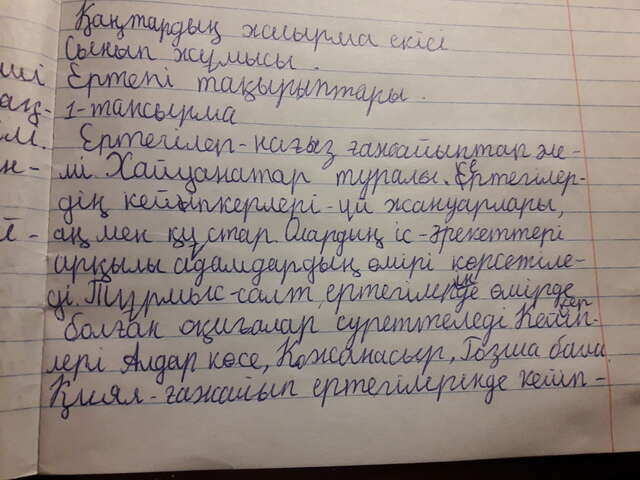 Қаңтардың жиырма екісі
Сынып жұмысы.
Ертегі тақырыптары.
1-тапсырма
Ертегілер-нағыз ғажайыптар әле-
мі. Хайуанаттар туралы Ертегілер-
дің кейіпкерлері-үй жануарлары,
аң мен құстар. Олардың іс-әрекеттері
арқылы адамдардың өмірі көрсетіле-
ді. Тұрмыс-салт ертегілерінде өмірде
болған оқиғалар суреттеледі. Кейіпкер-
лері Алдар көсе, Қожанасыр, Тазша бала.
Қиял-ғажайып ертегілерінде кейіп-